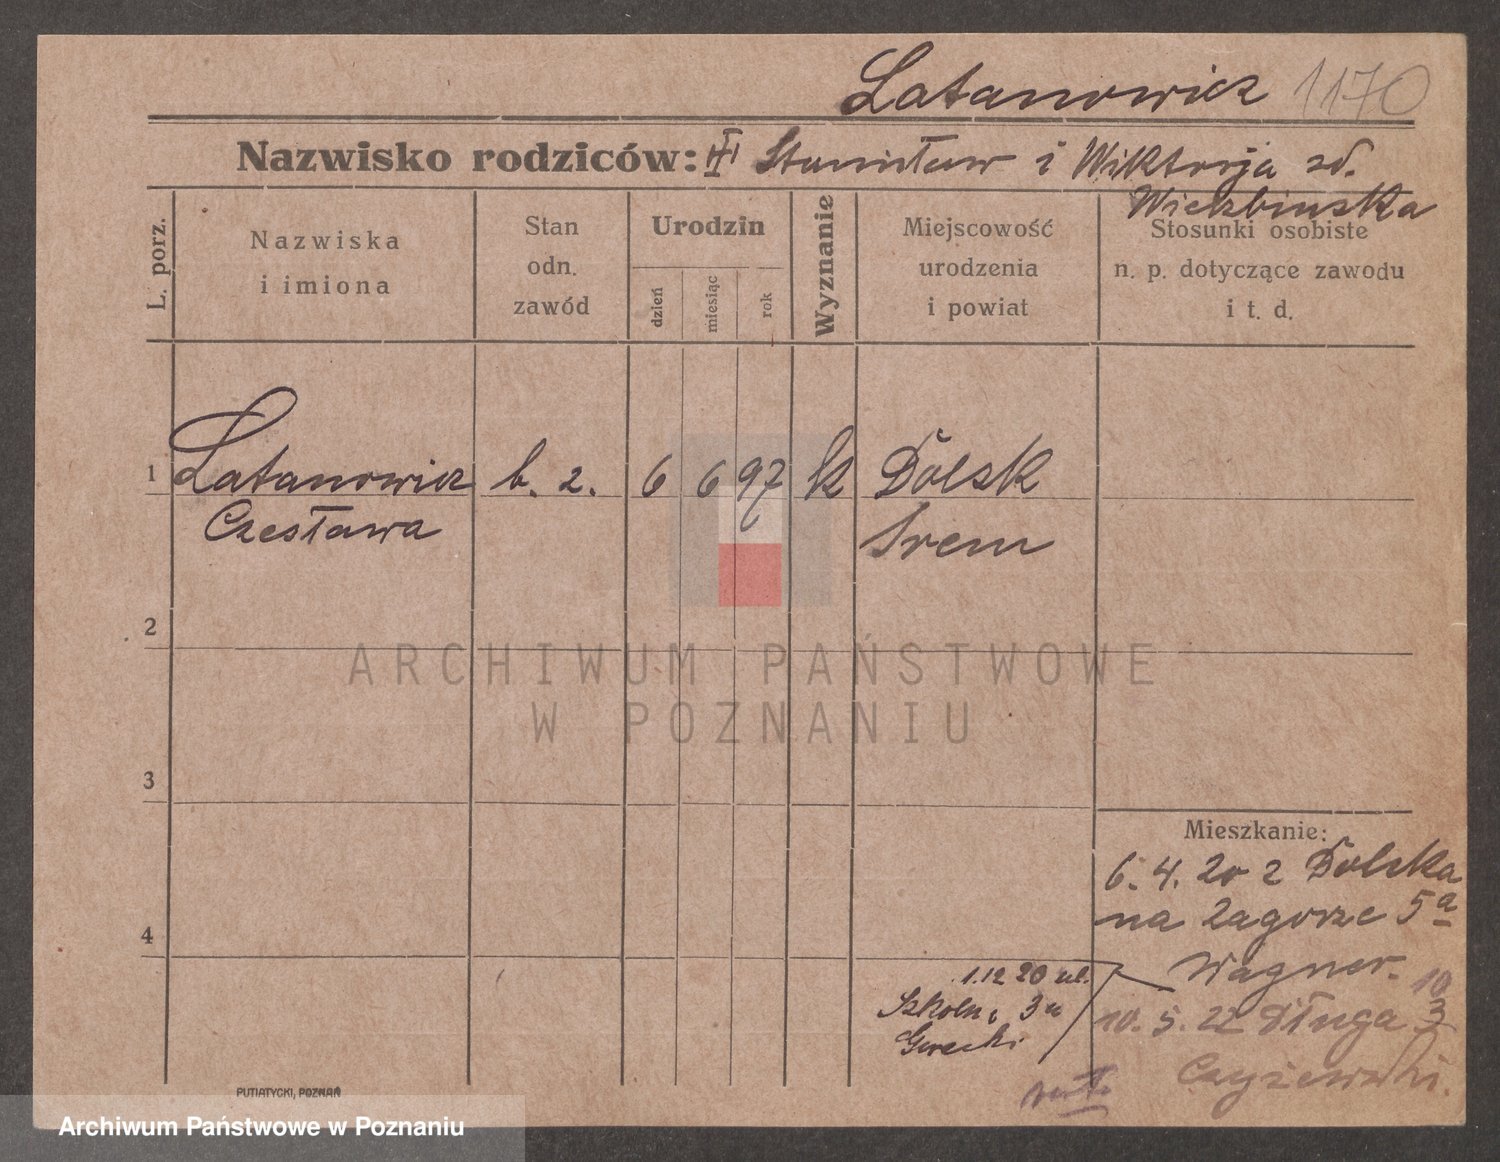 Latanowicz 1170
Nazwisko rodziców: Stanisław i Wiktorja zd.
Wierzbinska
L. porz.
Nazwiska
i imiona
Stan
odn.
zawód
Urodzin
dzień
miesiąc
rok
Wyznanie
Miejscowość
urodzenia
i powiat
Stosunki osobiste
n. p. dotyczące zawodu
i t. d.
1 Latanowicz b. z. 6 6 97 k Dolsk
Czesława Srem
2
ARCHIWUM PAŃSTWOWE
W POZNANIU
3
Mieszkanie:
6. 4. 20 z Dolska
na Zagorze 5a
Wagner.
4
1.12 20 ul.
Szkolna 3
Gorecki
10. 5. 22 Długa 3
Czyżewski.
PUTIATYCKI, POZNAŃ
Archiwum Państwowe w Poznaniu